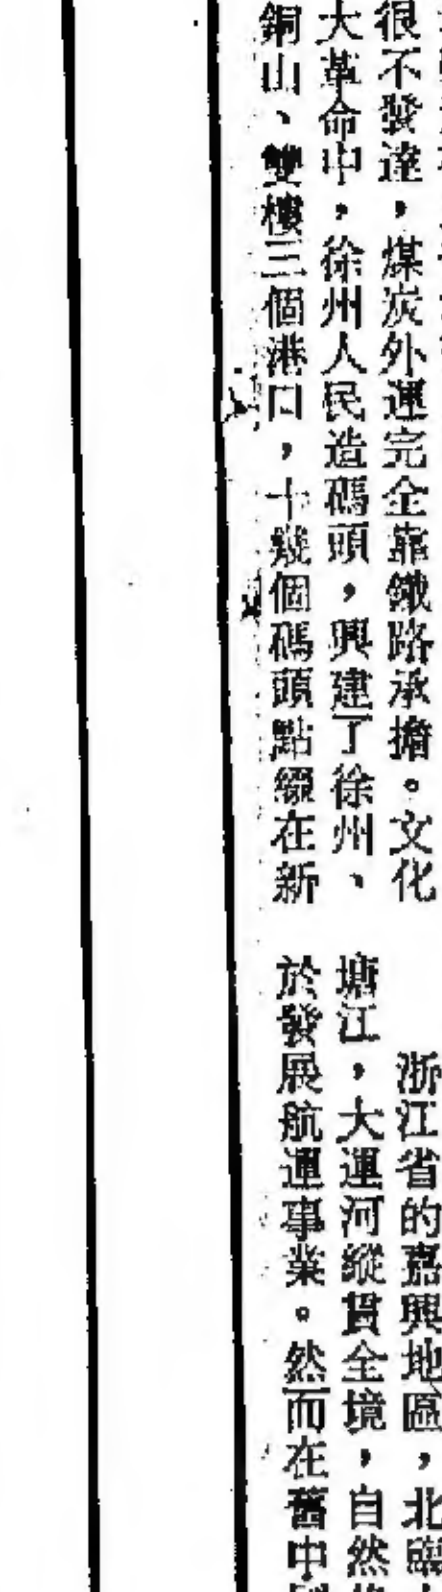 很不發達，煤炭外運完全靠鐵路承擔。文化
大革命中，徐州人民造碼頭，興建了徐州、
銅山、雙樓三個港口，十幾個碼頭點綴在新
浙江省的嘉興地區，北臨
塘江，大運河縱貫全境，自然
於發展航運事業。然而在舊中